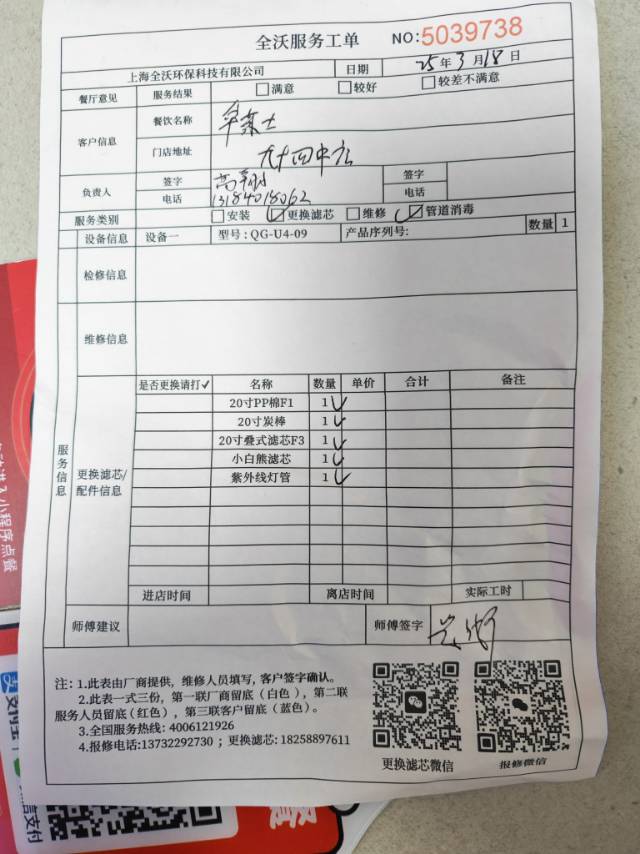 全沃服务工单 NO:5039738
上海全沃环保科技有限公司 日期 25年3月18日
餐厅意见 服务结果 满意 较好 较差不满意
客户信息 餐饮名称
门店地址 九十四中店
负责人 签字 签字
电话 13184018062 电话
服务类别 安装 更换滤芯 维修 管道消毒
设备信息 设备一 型号:QG-U4-09 产品序列号: 数量 1
检修信息
维修信息
服务信息
更换滤芯/配件信息
是否更换请打✓ 名称 数量 单价 合计 备注
20寸PP棉F1 1
20寸炭棒 1
20寸叠式滤芯F3 1
小白熊滤芯 1
紫外线灯管 1
进店时间 离店时间 实际工时
师傅建议 师傅签字
注:1.此表由厂商提供，维修人员填写，客户签字确认。
2.此表一式三份，第一联厂商留底（白色），第二联
服务人员留底(红色)，第三联客户留底（蓝色）。
3.全国服务热线: 4006121926
4.报修电话:13732292730 ；更换滤芯: 18258897611
更换滤芯微信 报修微信
小程序点餐